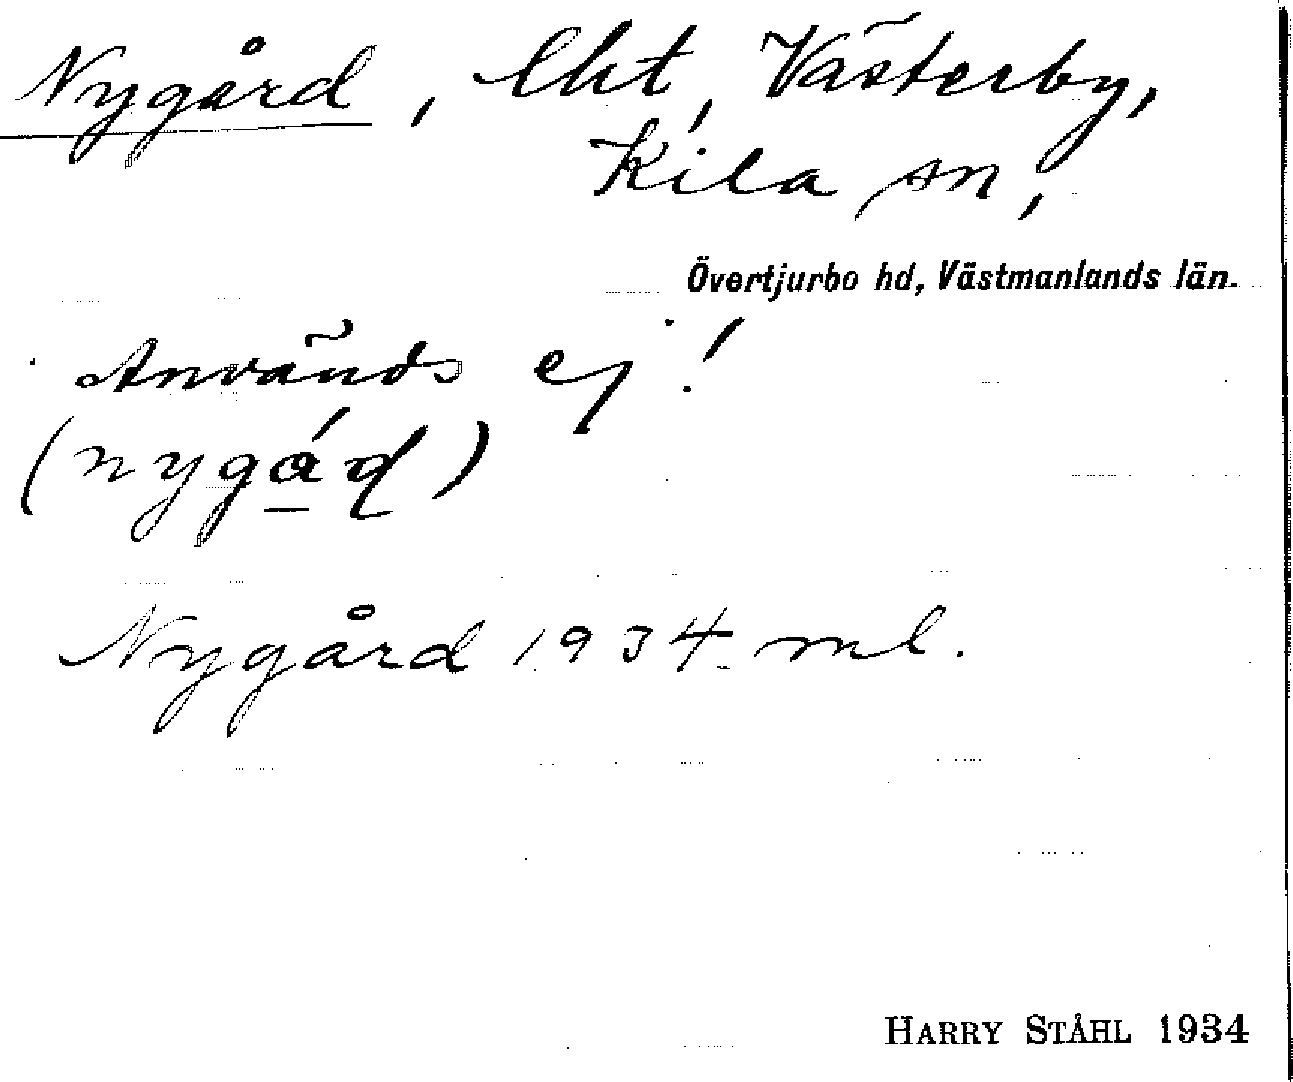 Nygård, lht, Västerby,
Kila sn,
Övertjurbo hd, Västmanlands län.
Används ej!
(nygá̱ɖ)
Nygård 1934 ml.
HARRY STÅHL 1934